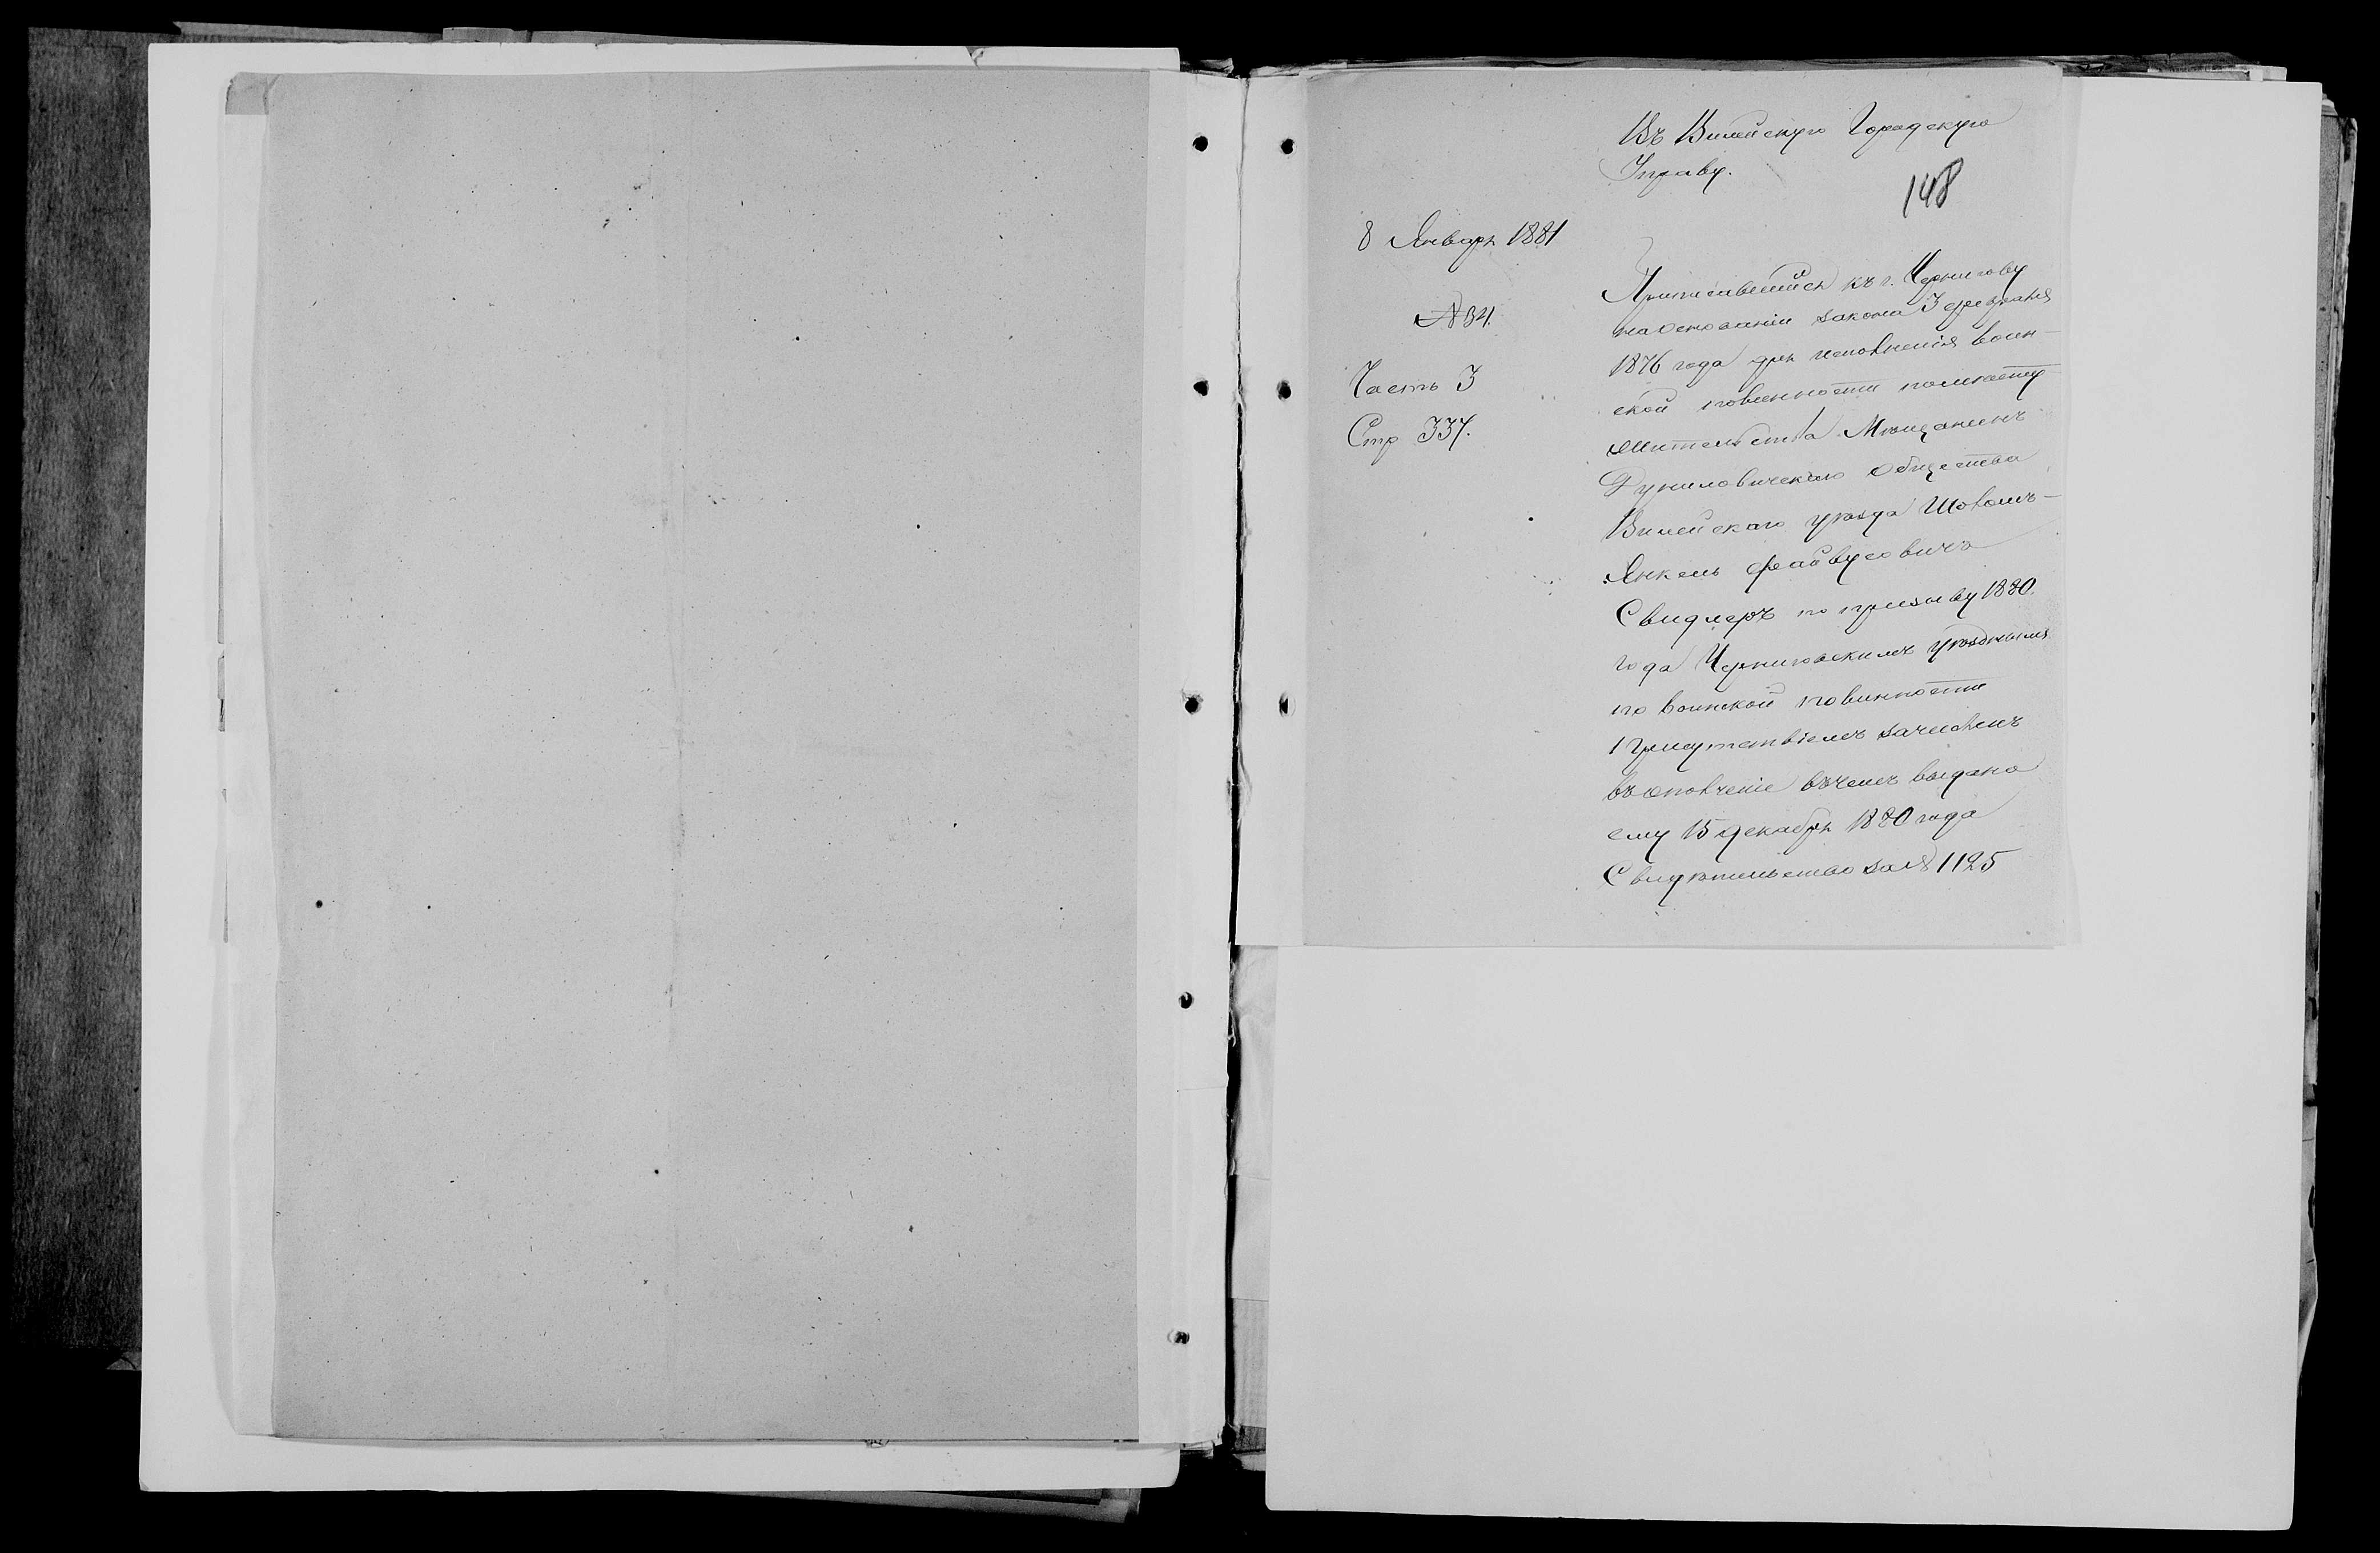 Въ Вилейскую Городскую
Управу.
148
8 Января 1881
№ 34.
Часть 3
Стр 337.
Приписавшійся къ г. Чернигову
на основаніи закона 3 февраля
1876 года для исполненія воин-
ской повинности по мѣсту
жительства Мѣщанинъ
Дуниловичскаго общества
Вилейскаго уѣзда Шоломъ-
Янкель Файвусовичъ
Свидлеръ по призыву 1880
года Черниговскимъ уѣзднымъ
по воинской повинности
присутствіемъ зачисленъ
въ ополченіе въ чемъ выдано
ему 15 декабря 1880 года
Свидѣтельство за № 1125